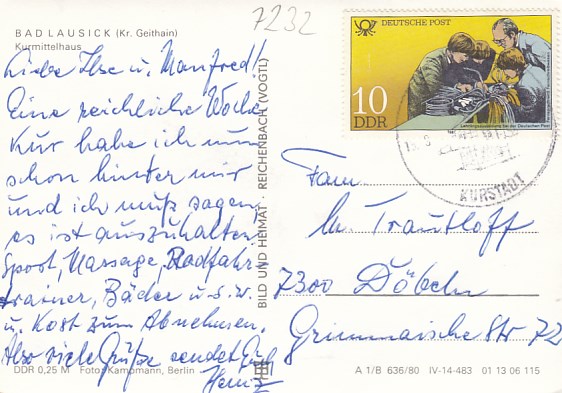 7232
BAD LAUSICK (Kr. Geithain)
Kurmittelhaus
Liebe Ilse u. Manfred!
Eine reichliche Woche
Kur habe ich nun
schon hinter mir
und ich muß sagen,
es ist auszuhalten
Sport, Massage, Radfahr-
trainer, Bäder u.s.w.
u. Kost zum Abnehmen.
Also viele Grüße sendet Euch
Heinz
DDR 0,25 M Foto: Kampmann, Berlin
BILD UND HEIMAT · REICHENBACH (VOGTL)
DEUTSCHE POST
10
DDR
Lehrlingsausbildung bei der Deutschen Post
KURSTADT
Fam.
M. Trautloff
7300 Döbeln
Grimmaische Str 72
A 1/B 636/80 IV-14-483 01 13 06 115